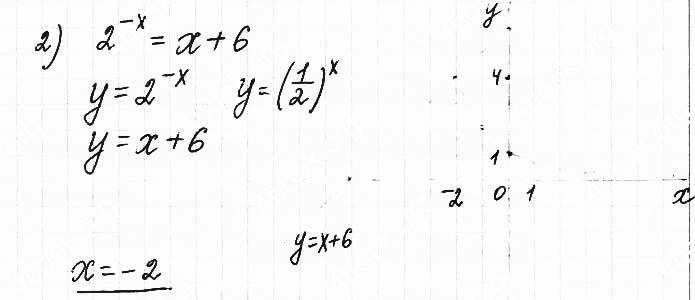 2) 2^{-x} = x + 6
y = 2^{-x} y = (1/2)^x
y = x + 6
x = -2
y = x + 6
y
4
1
-2 0 1 x